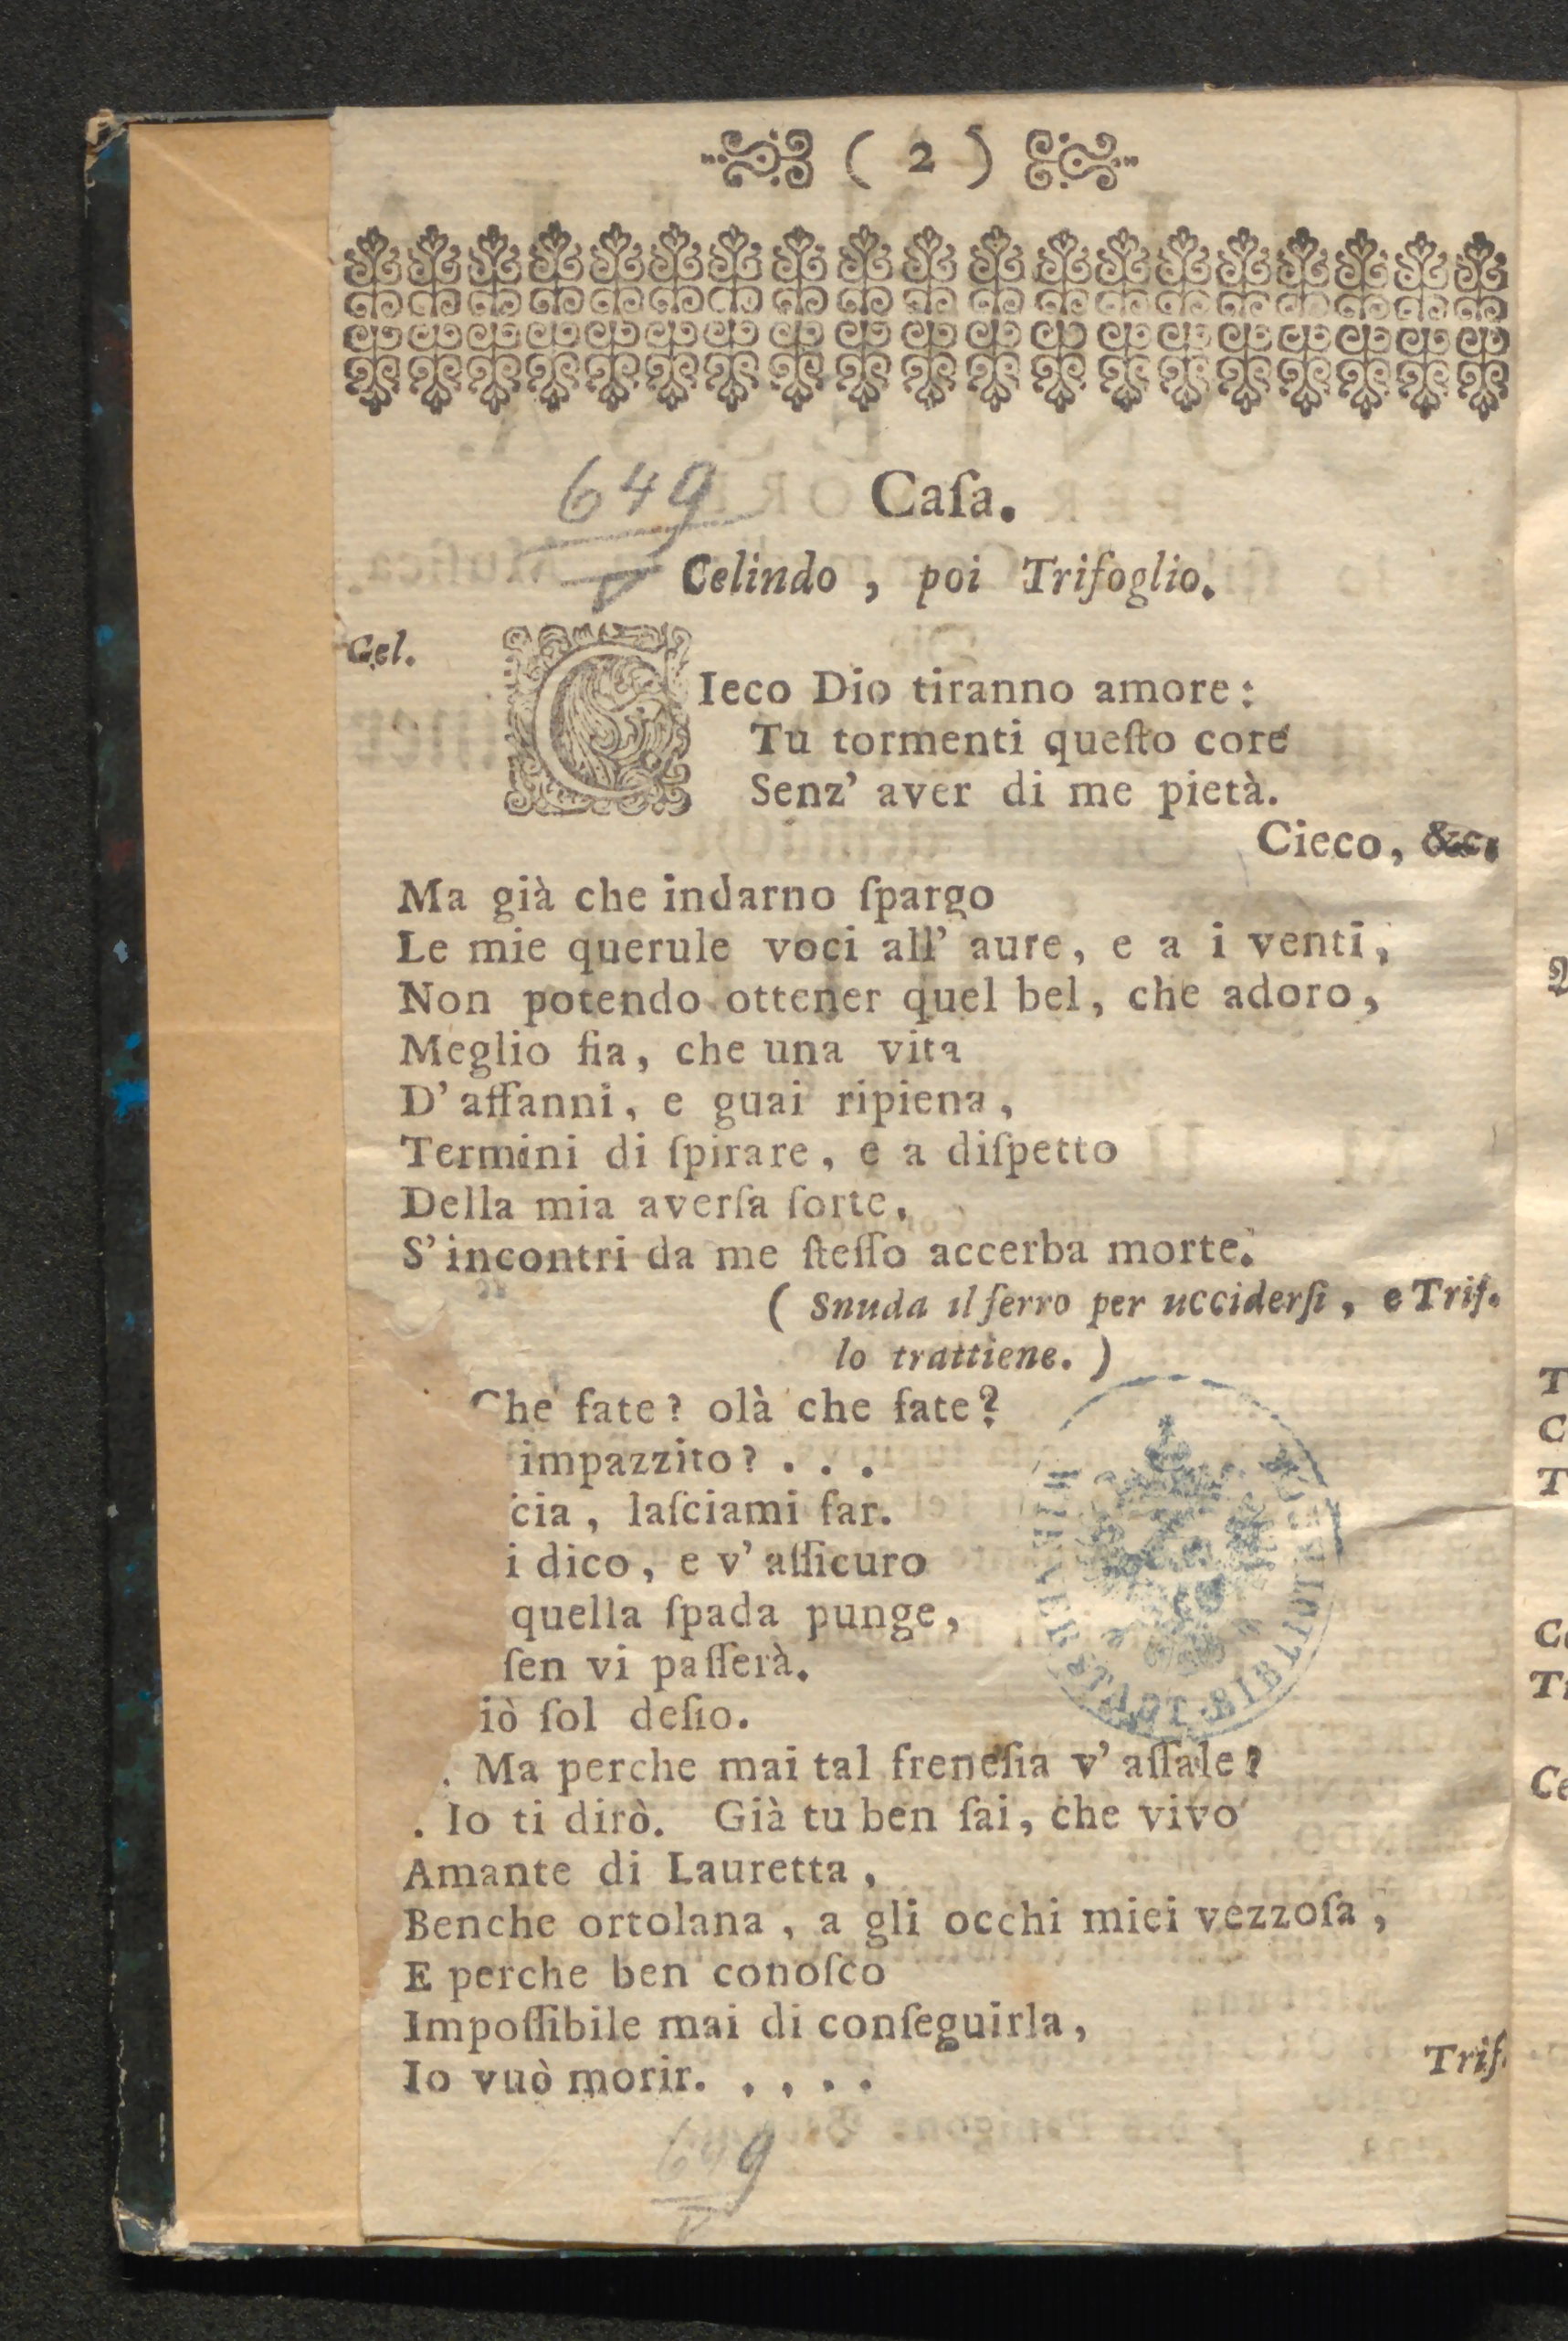 ( 2 )
649
Caſa.
Celindo, poi Trifoglio.
Cel.
CIeco Dio tiranno amore:
Tu tormenti queſto core
Senz' aver di me pietà.
Cieco, &c.
Ma già che indarno ſpargo
Le mie querule voci all' aure, e a i venti,
Non potendo ottener quel bel, che adoro,
Meglio fia, che una vita
D' affanni, e guai ripiena,
Termini di ſpirare, e a diſpetto
Della mia averſa ſorte,
S' incontri da me ſteſſo accerba morte.
( Snuda il ferro per ucciderſi, e Trif.
lo trattiene. )
Che fate? olà che fate?
impazzito? . . .
cia, laſciami far.
i dico, e v' aſſicuro
quella ſpada punge,
ſen vi paſſerà.
iò ſol deſio.
. Ma perche mai tal freneſia v' aſſale?
. Io ti dirò. Già tu ben ſai, che vivo
Amante di Lauretta,
Benche ortolana, a gli occhi miei vezzoſa,
E perche ben conoſco
Impoſſibile mai di conſeguirla,
Io vuò morir. . . . .
Trif.
649
STADT-BIBLIOTHEK
T
C
T
Ti